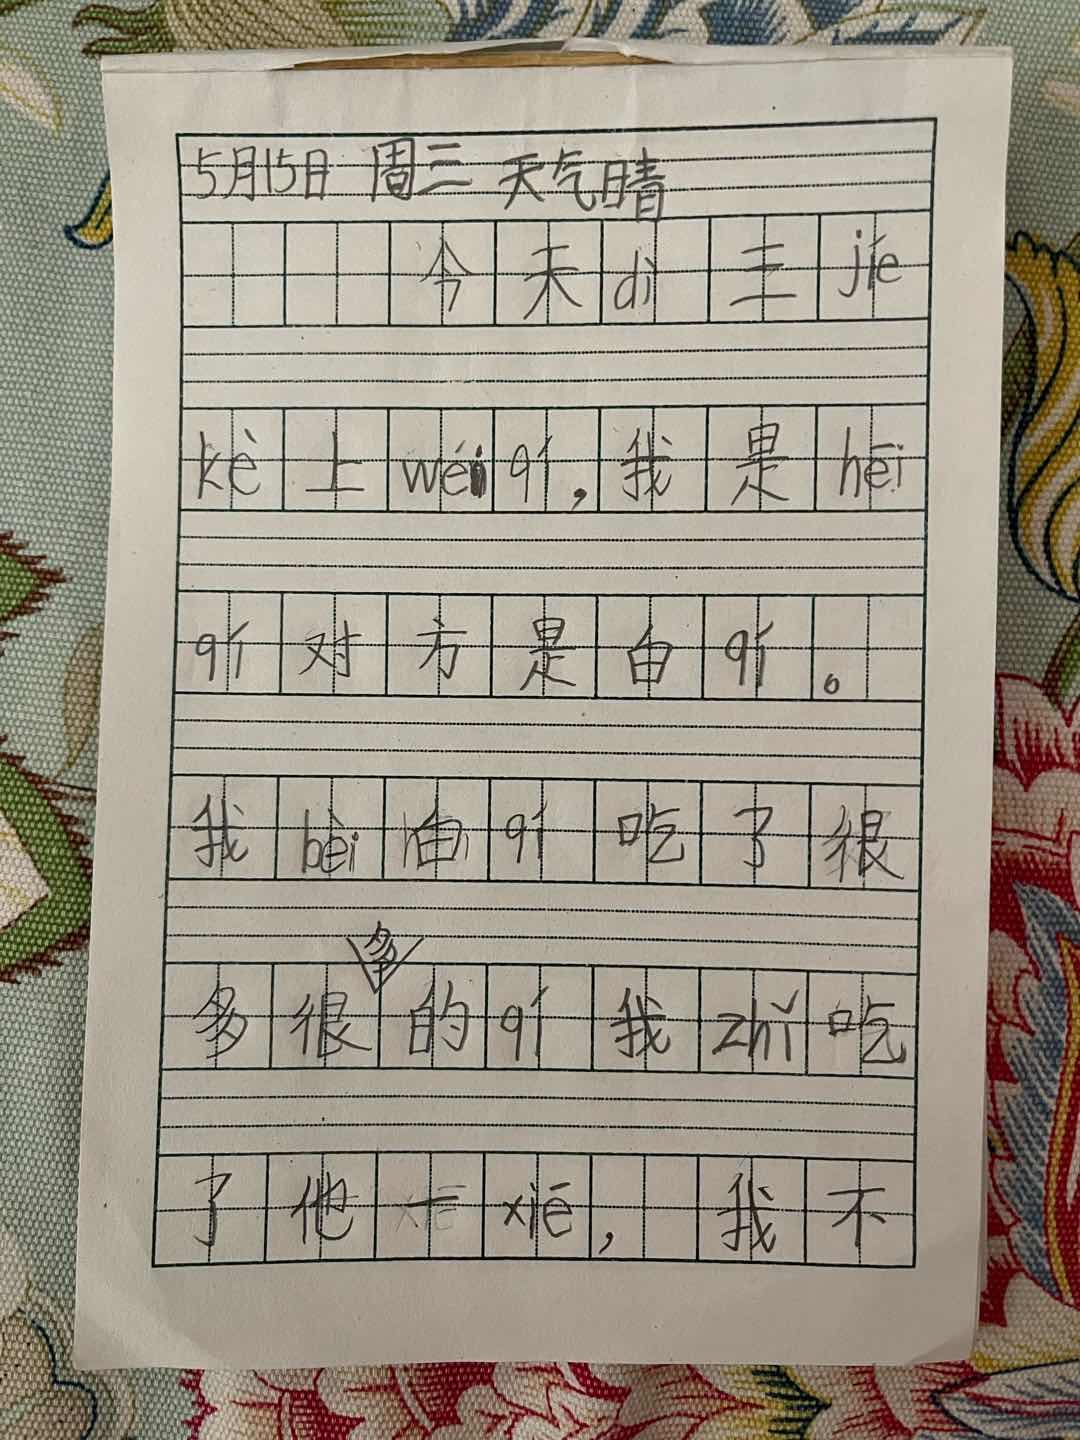 5月15日 周三 天气晴
今天dì三jié
kè上wéiqí,我是hēi
qí对方是白qí。
我bèi白qí吃了很
多很多的qí我zhǐ吃
了他一xiē,我不